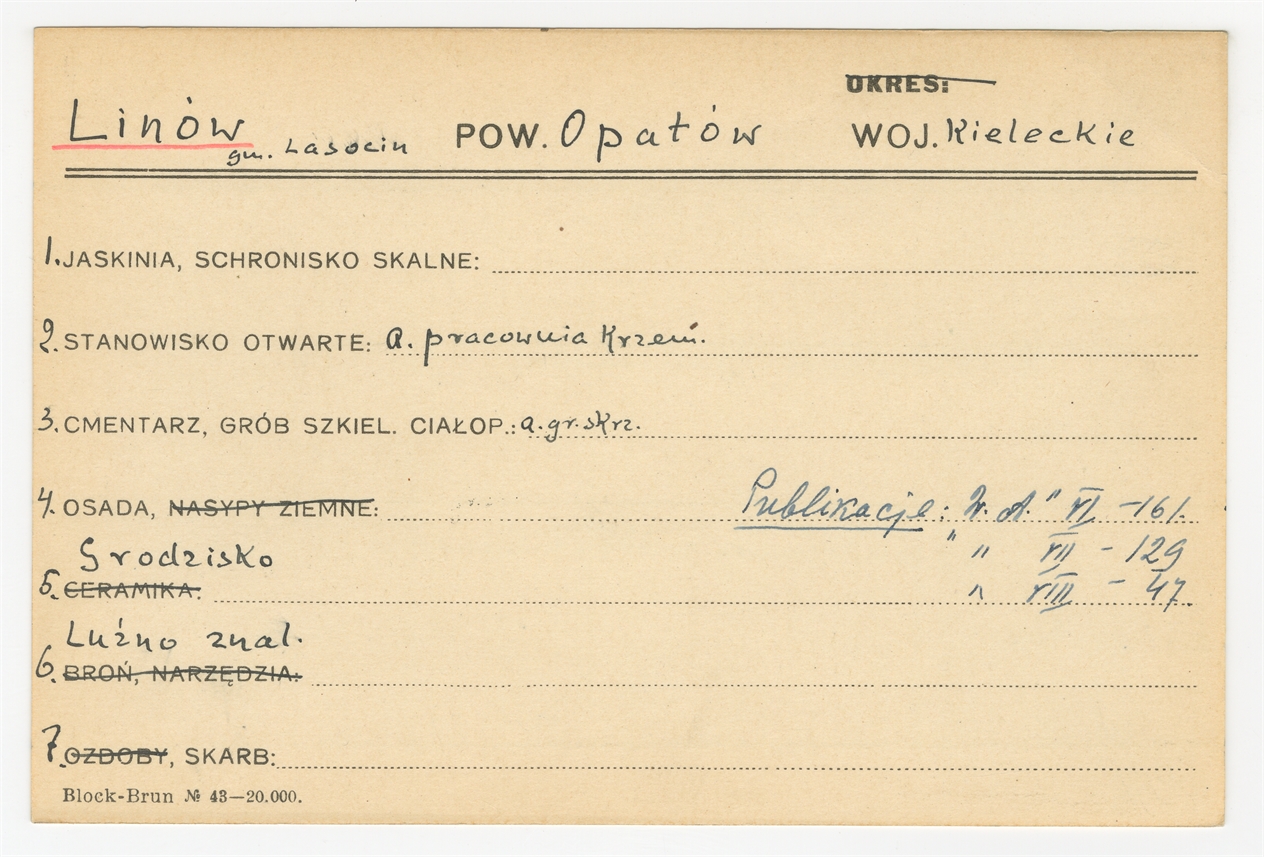 OKRES:
Linów gm. Lasocin POW. Opatów WOJ. Kieleckie
1. JASKINIA, SCHRONISKO SKALNE:
2. STANOWISKO OTWARTE: a. pracownia krzem.
3. CMENTARZ, GRÓB SZKIEL. CIAŁOP.: a. gr. skrz.
4. OSADA, NASYPY ZIEMNE: Publikacje: W. A. " VI - 161.
Grodzisko " " VII - 129
5. CERAMIKA: " VIII - 47.
Luźno znal.
6. BROŃ, NARZĘDZIA:
7. OZDOBY, SKARB:
Block-Brun № 43—20.000.